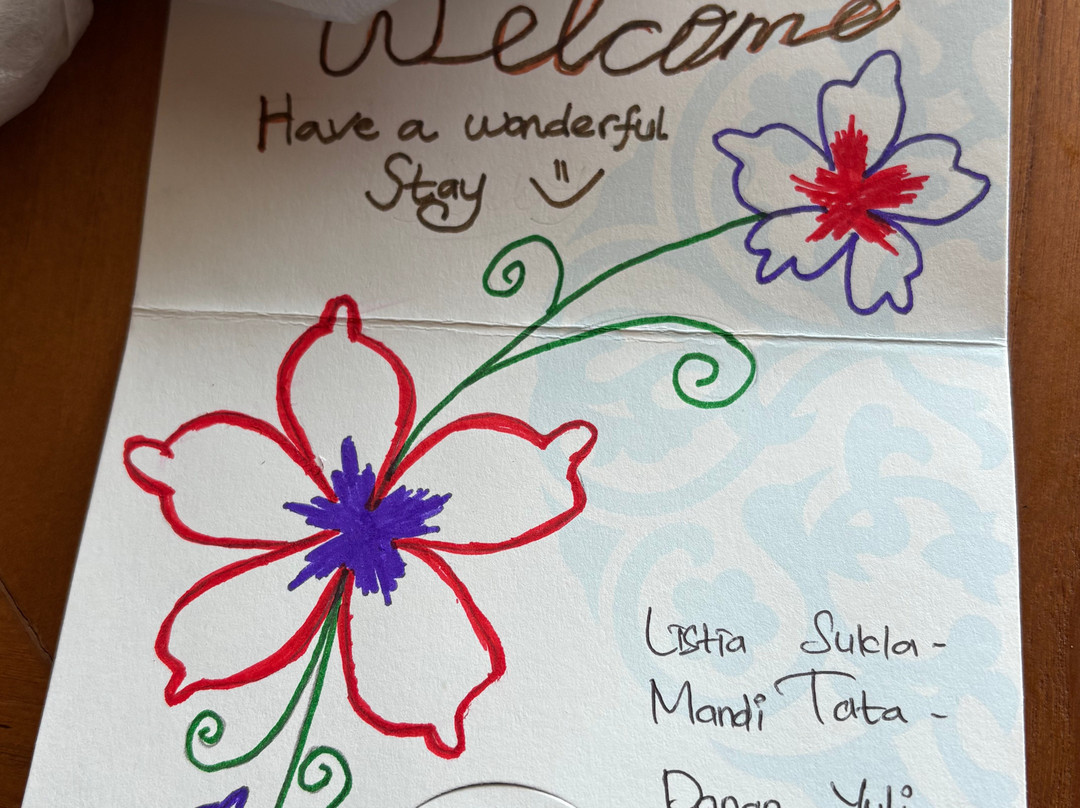 Welcome
Have a wonderful
Stay
Listia Sukla -
Mandi Tata -
Yuli